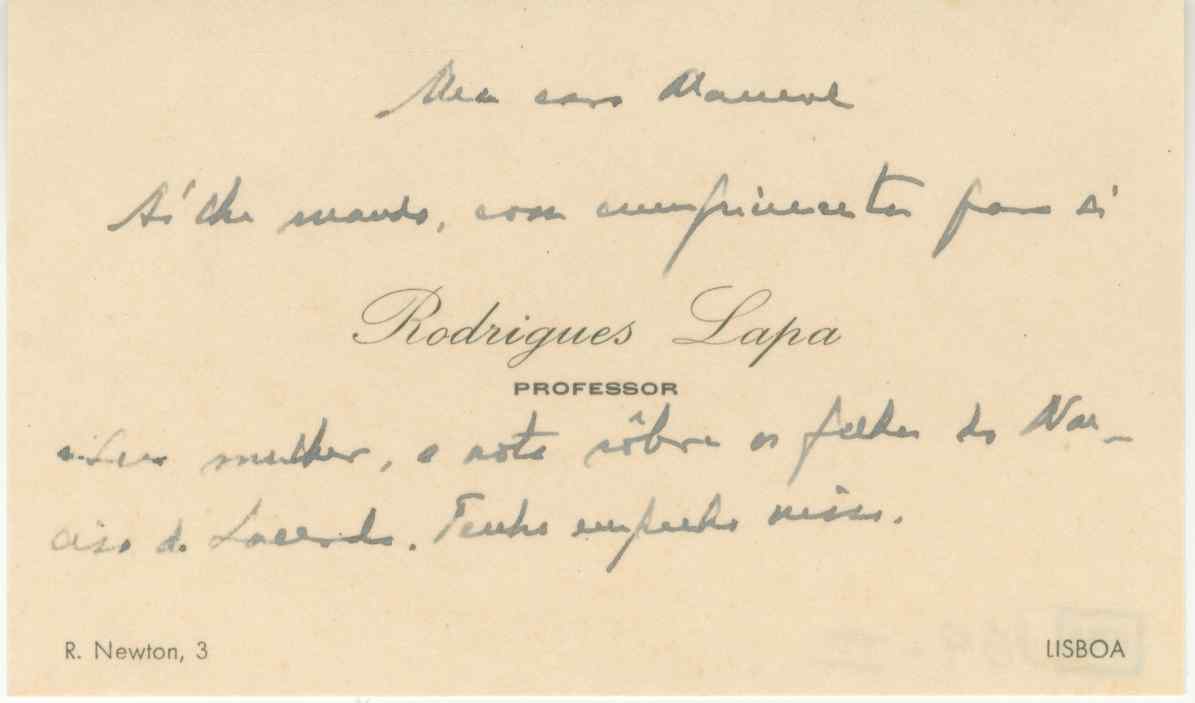 Meu caro Manuel
Aí lhe mando, com cumprimentos para si
Rodrigues Lapa
PROFESSOR
e sua mulher, a nota sôbre os filhos do Nar-
ciso de Lacerda. Tenho empenho nisso.
R. Newton, 3
LISBOA